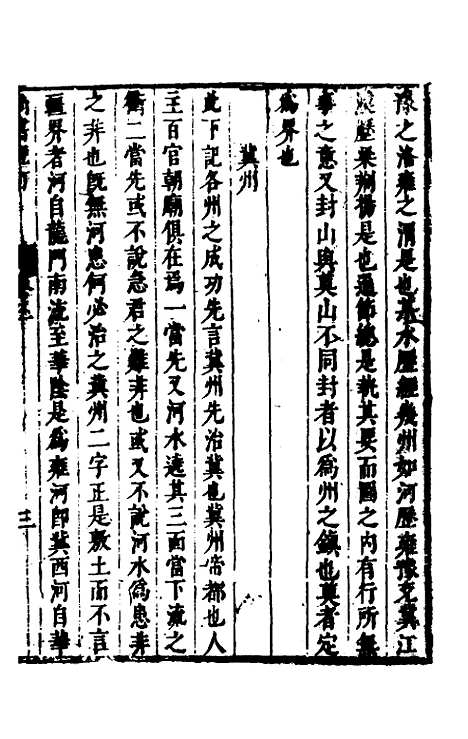 豫之洛雍之渭是也水歷經幾州如河歷雍豫兗冀江
歷梁荊揚是也通節總是執其要而圖之內有行所無
事之意又封山與奠山不同封者以為州之鎮也奠者定
為界也
冀州
此下記各州之成功先言冀州先治冀也冀州帝都也人
王百官朝廟俱在焉一當先又河水遶其三面當下流之
衝二當先或不說急君之難非也或又不說河水為患非
之非也既無河患何必治之冀州二字正是敷土而不言
疆界者河自龍門南流至華陰是為雍河即冀西河自華
三